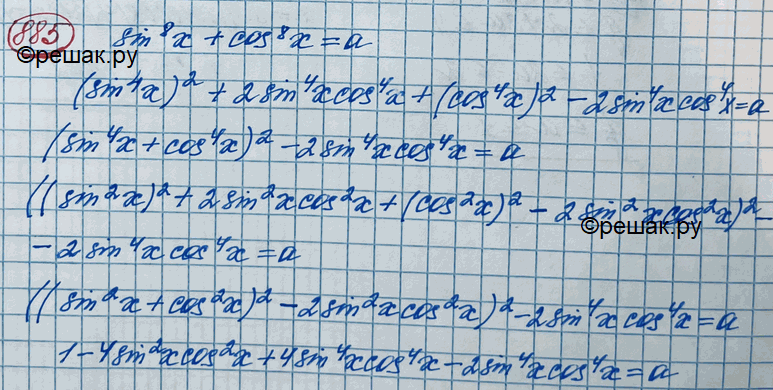 885 sin⁸x + cos⁸x = a
©решак.ру
(sin⁴x)² + 2sin⁴xcos⁴x + (cos⁴x)² - 2sin⁴xcos⁴x = a
(sin⁴x + cos⁴x)² - 2sin⁴xcos⁴x = a
((sin²x)² + 2sin²xcos²x + (cos²x)² - 2sin²xcos²x)² -
©решак.ру
- 2sin⁴xcos⁴x = a
((sin²x + cos²x)² - 2sin²xcos²x)² - 2sin⁴xcos⁴x = a
1 - 4sin²xcos²x + 4sin⁴xcos⁴x - 2sin⁴xcos⁴x = a